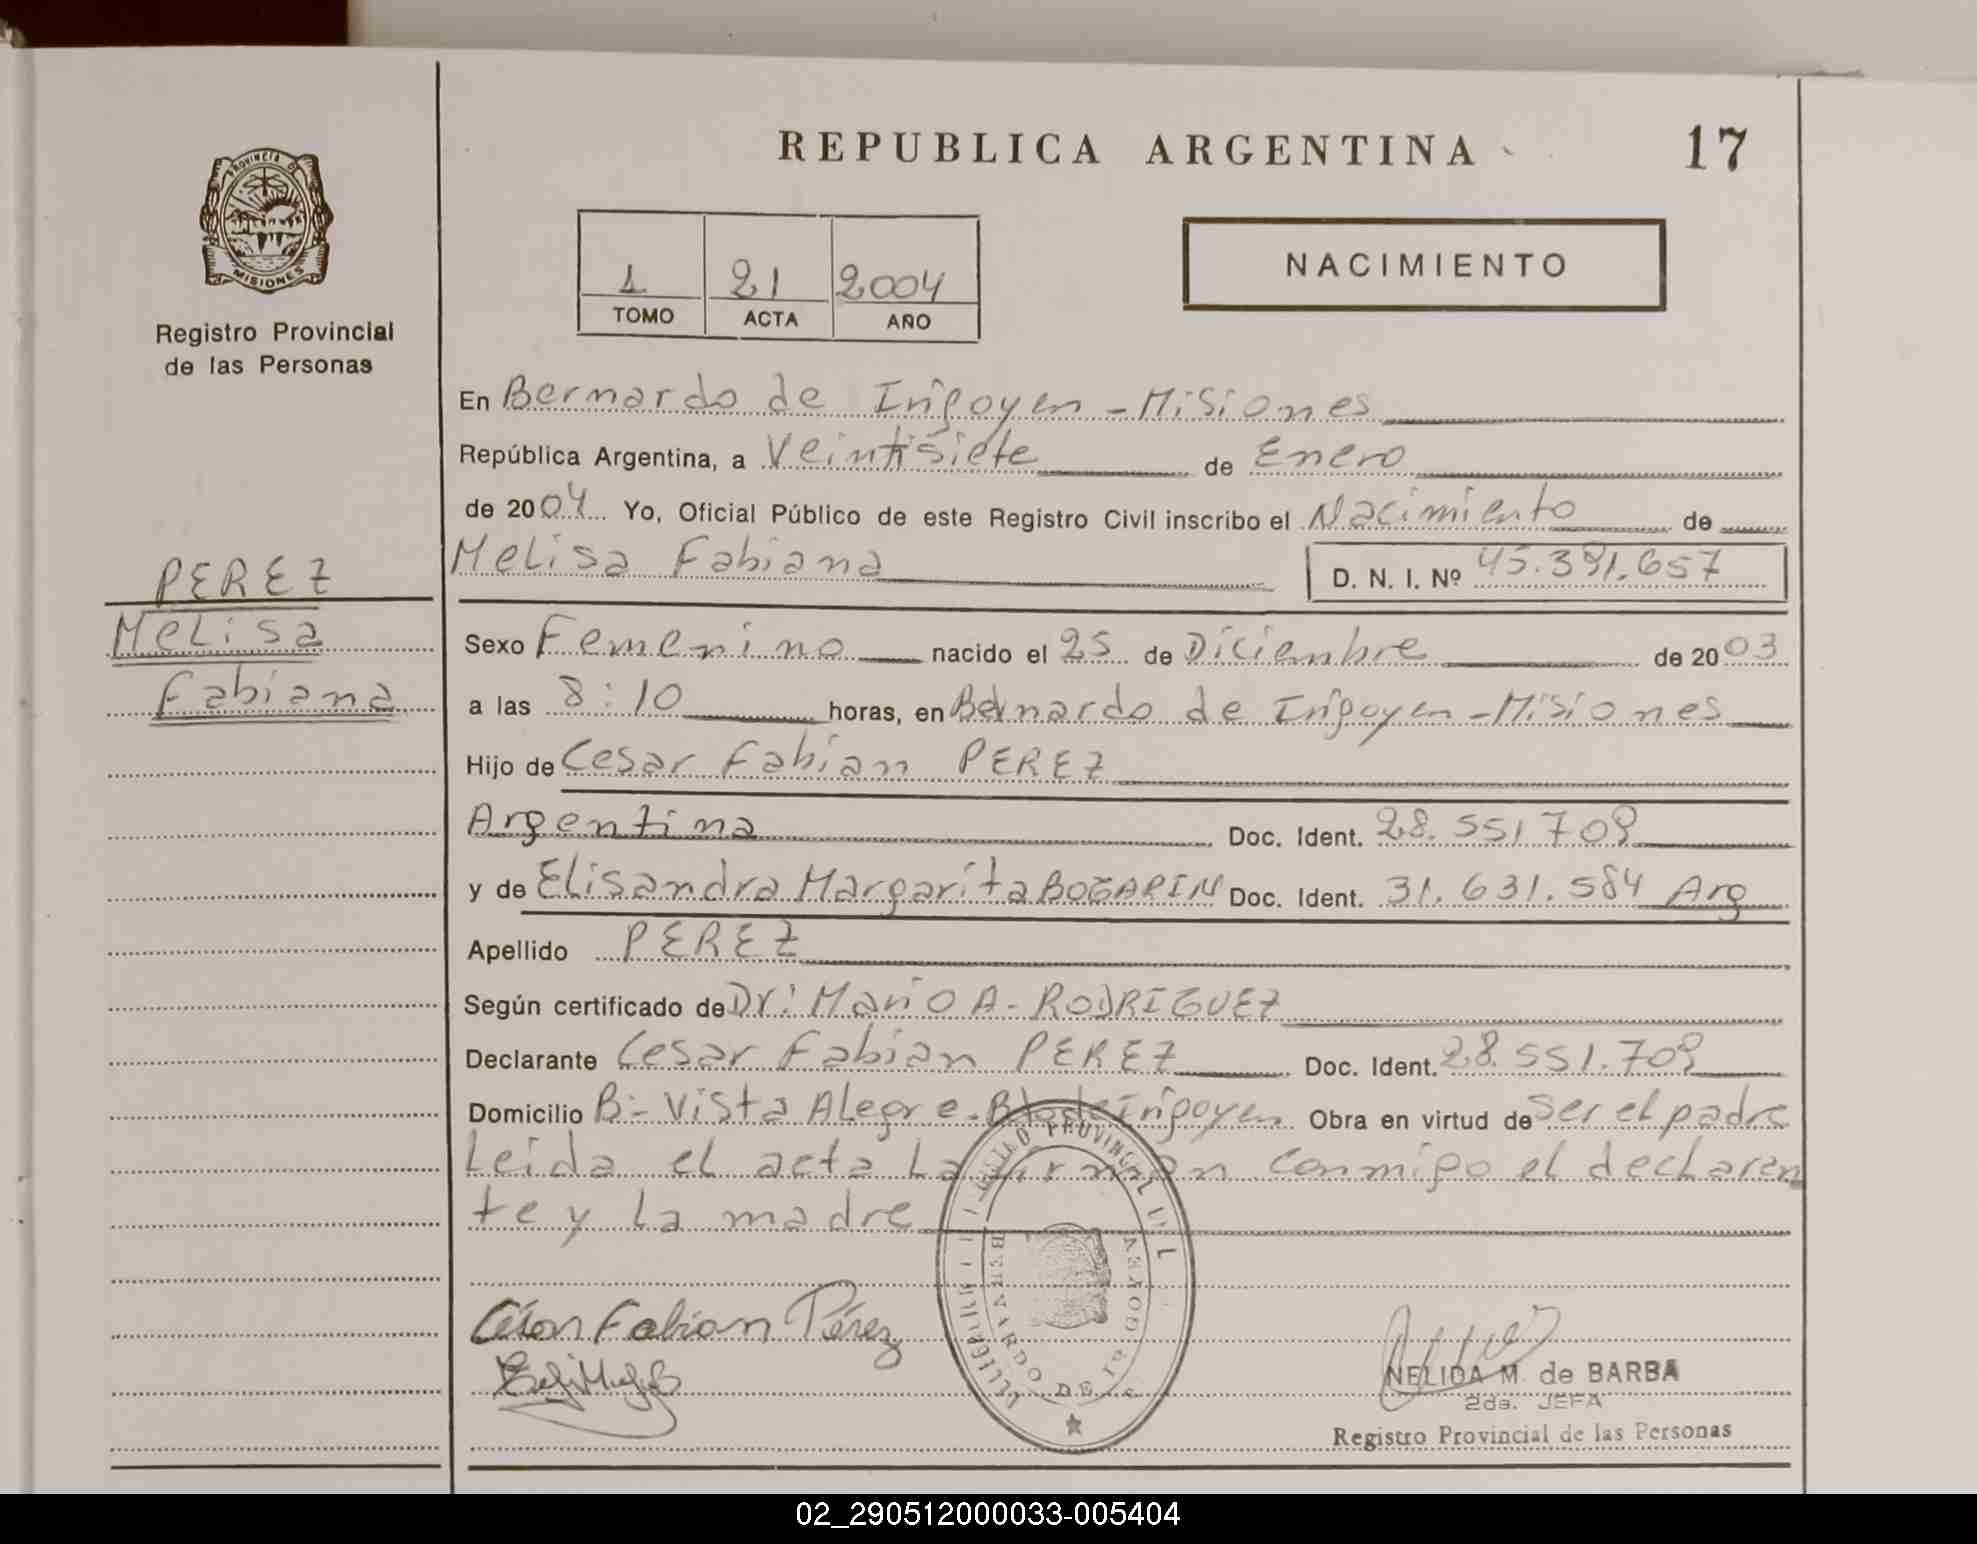 REPUBLICA ARGENTINA
17
PROVINCIA DE
MISIONES
Registro Provincial
de las Personas
1 21 2004
TOMO ACTA AÑO
NACIMIENTO
En Bernardo de Irigoyen - Misiones
República Argentina, a Veintisiete de Enero
de 2004 Yo, Oficial Público de este Registro Civil inscribo el Nacimiento de
Melisa Fabiana D. N. I. Nº 45.391.657
PEREZ
Melisa
Fabiana
Sexo Femenino nacido el 25 de Diciembre de 2003
a las 8:10 horas, en Bernardo de Irigoyen - Misiones
Hijo de Cesar Fabian PEREZ
Argentina Doc. Ident. 28.551.709
y de Elisandra Margarita BOGARIN Doc. Ident. 31.631.584 Arg
Apellido PEREZ
Según certificado de Dr: Mario A. RODRIGUEZ
Declarante Cesar Fabian PEREZ Doc. Ident. 28.551.709
Domicilio B:- Vista Alegre - Bdo de Irigoyen Obra en virtud de ser el padre
Leida el acta la firman conmigo el declaran
te y la madre
César Fabian Pérez
NELIDA M. de BARBA
2da. JEFA
Registro Provincial de las Personas
02_290512000033-005404